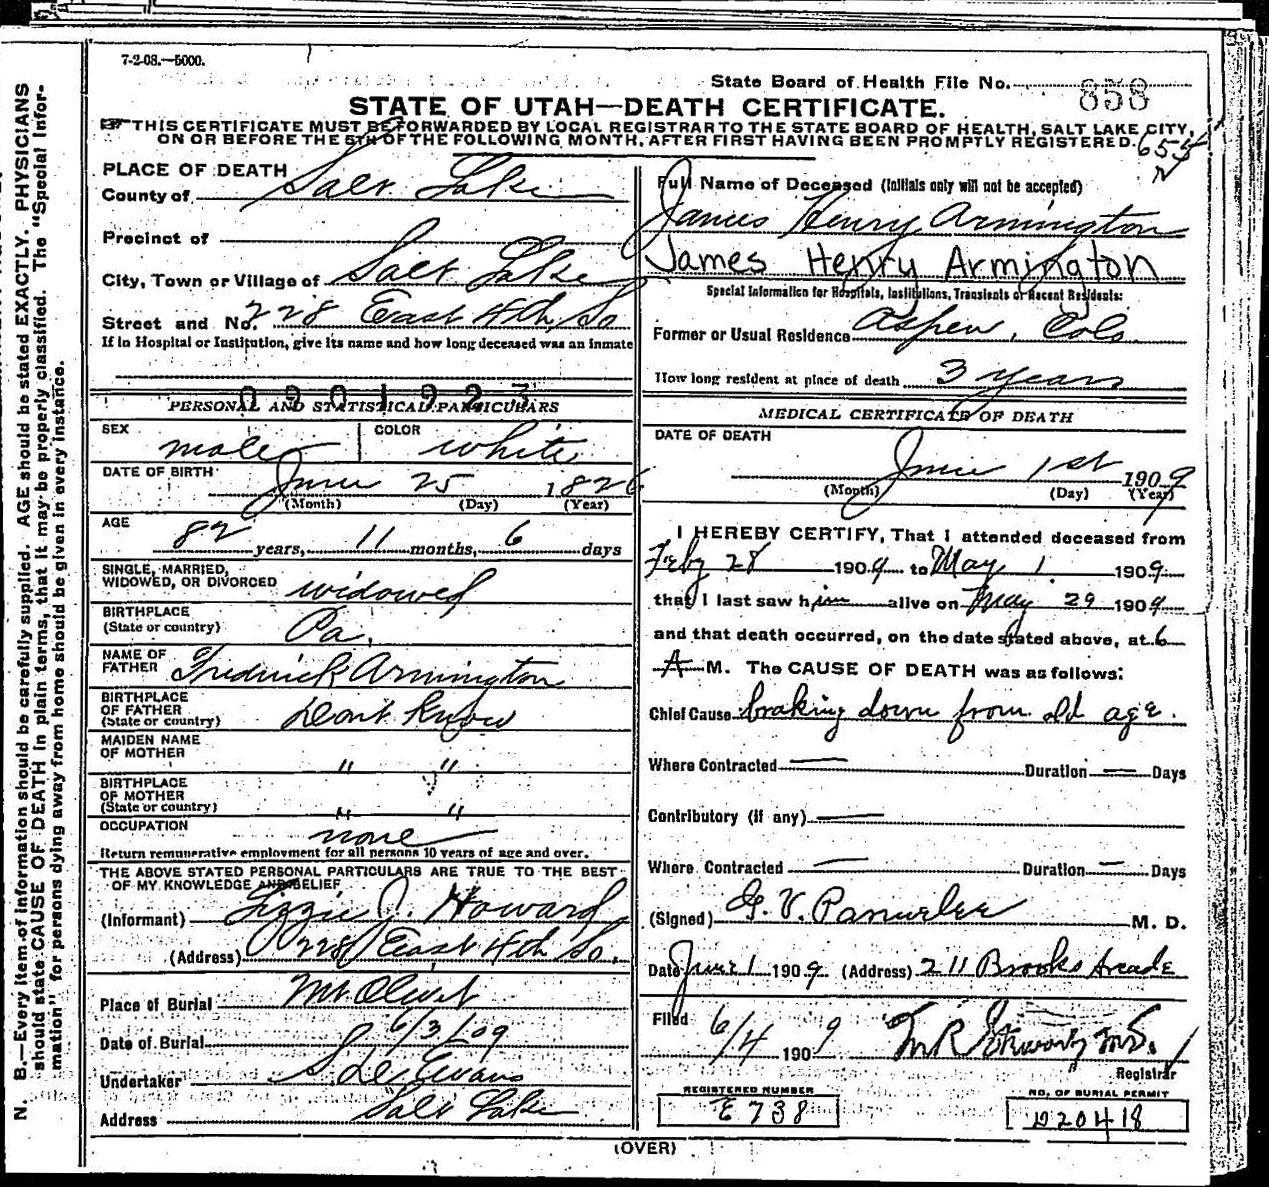 7-2-08.—5000.
State Board of Health File No. 858
STATE OF UTAH—DEATH CERTIFICATE.
THIS CERTIFICATE MUST BE FORWARDED BY LOCAL REGISTRAR TO THE STATE BOARD OF HEALTH, SALT LAKE CITY,
ON OR BEFORE THE 5TH OF THE FOLLOWING MONTH, AFTER FIRST HAVING BEEN PROMPTLY REGISTERED.
PLACE OF DEATH
County of Salt Lake
Precinct of
City, Town or Village of Salt Lake
Street and No. 228 East 4th So
If in Hospital or Institution, give its name and how long deceased was an inmate
0901923
PERSONAL AND STATISTICAL PARTICULARS
SEX male COLOR white
DATE OF BIRTH June 25 1826
(Month) (Day) (Year)
AGE
82 years, 11 months, 6 days
SINGLE, MARRIED,
WIDOWED, OR DIVORCED widowed
BIRTHPLACE
(State or country) Pa.
NAME OF
FATHER Frederick Armington
BIRTHPLACE
OF FATHER
(State or country) Dont Know
MAIDEN NAME
OF MOTHER " "
BIRTHPLACE
OF MOTHER
(State or country) " "
OCCUPATION none
Return remunerative employment for all persons 10 years of age and over.
THE ABOVE STATED PERSONAL PARTICULARS ARE TRUE TO THE BEST
OF MY KNOWLEDGE AND BELIEF
(Informant) Lizzie J. Howard
(Address) 228 East 4th So.
Place of Burial Mt Olivet
Date of Burial 6/3/09
Undertaker S D Evans
Address Salt Lake
Full Name of Deceased (Initials only will not be accepted)
James Henry Armington
James Henry Armington
Special Information for Hospitals, Institutions, Transients or Recent Residents:
Former or Usual Residence Aspen, Colo
How long resident at place of death 3 years
MEDICAL CERTIFICATE OF DEATH
DATE OF DEATH
June 1st 1909
(Month) (Day) (Year)
I HEREBY CERTIFY, That I attended deceased from
Feby 28 1909 to May 1 1909
that I last saw him alive on May 29 1909
and that death occurred, on the date stated above, at 6
A M. The CAUSE OF DEATH was as follows:
Chief Cause braking down from old age.
Where Contracted — Duration — Days
Contributory (if any) —
Where Contracted — Duration — Days
(Signed) G. V. M. D.
Date June 1 1909 (Address) 211 Brooks Arcade
Filed 6/4 1909
Registrar
REGISTERED NUMBER
E738
NO. OF BURIAL PERMIT
D20418
(OVER)
N. B.—Every item of information should be carefully supplied. AGE should be stated EXACTLY. PHYSICIANS
should state CAUSE OF DEATH in plain terms, that it may be properly classified. The "Special Infor-
mation" for persons dying away from home should be given in every instance.